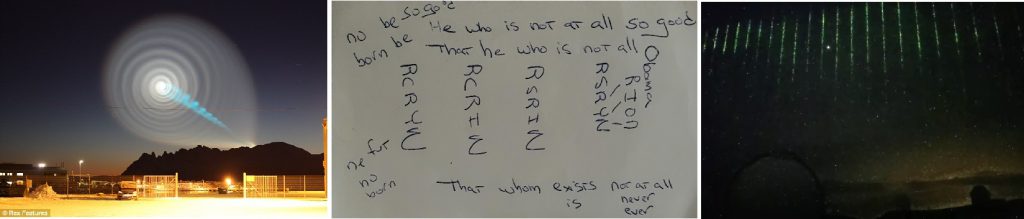 no be so good
He who is not at all so good
born be That he who is not all
Obama
RCRYW
RCRIW
RSRIW
RSRYW
RION
ne fut
no
born
That whom exists not at all
is never
ever
© Rex Features